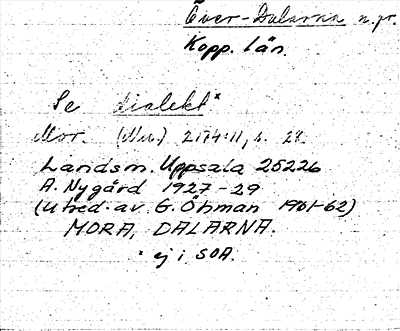 Över-Dalarna n.pr.
Kopp. län.
Se dialekt*
Mor. (Mu.) 2174:11, s. 28.
Landsm. Uppsala 25226
A. Nygård 1927-29
(Utred. av G. Öhman 1961-62)
MORA, DALARNA.
* ej i SOA.